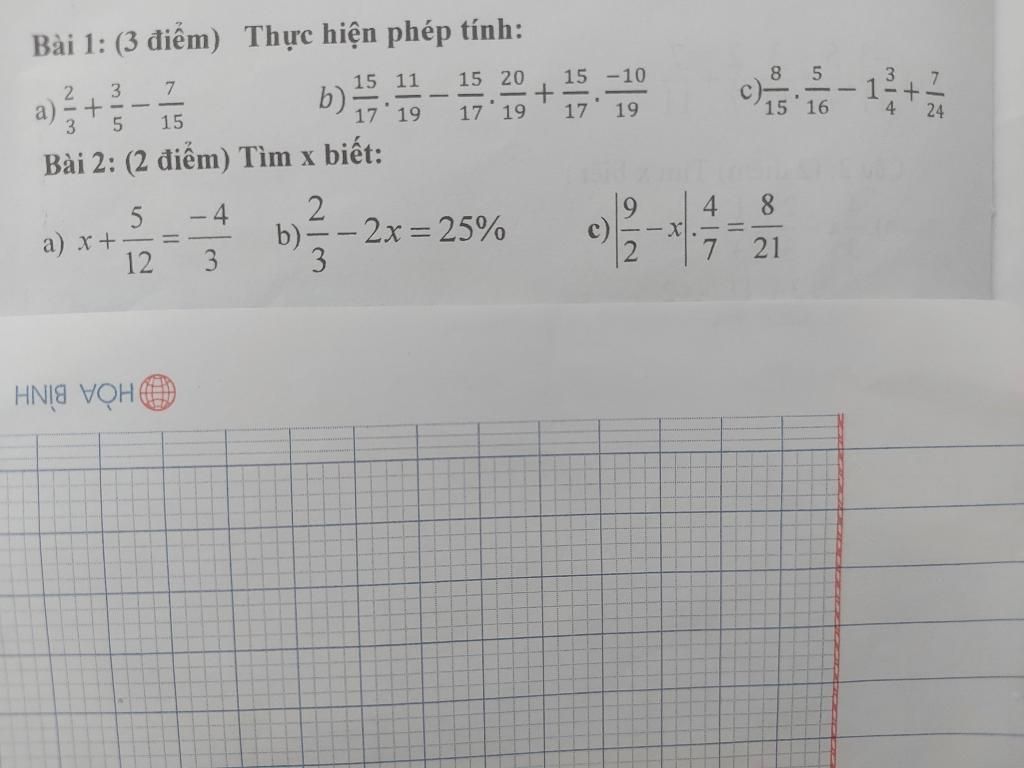 Bài 1: (3 điểm) Thực hiện phép tính:
a) 2/3 + 3/5 − 7/15 b) 15/17 . 11/19 − 15/17 . 20/19 + 15/17 . −10/19 c) 8/15 . 5/16 − 1 3/4 + 7/24
Bài 2: (2 điểm) Tìm x biết:
a) x + 5/12 = −4/3 b) 2/3 − 2x = 25% c) |9/2 − x| . 4/7 = 8/21
HÒA BÌNH